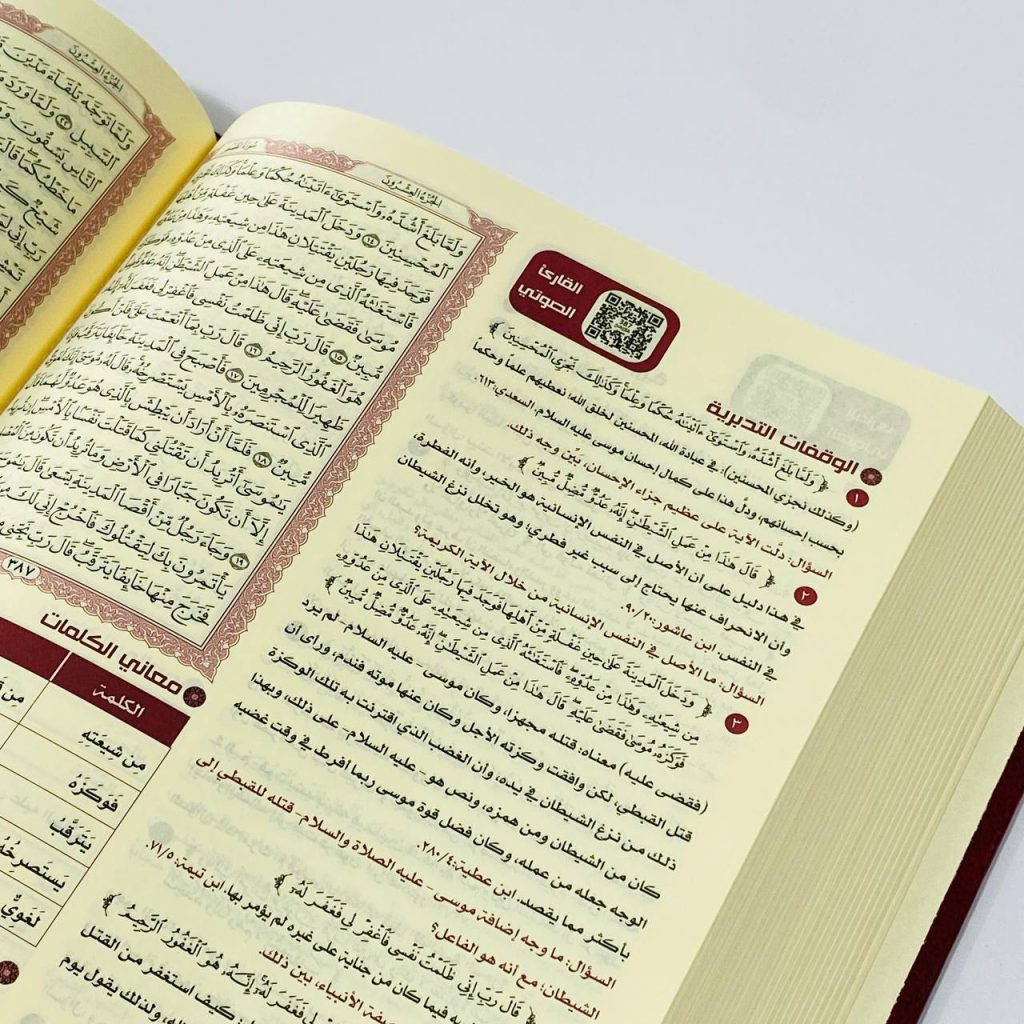 الجُزْءُ العِشْرُونَ
وَلَمَّا تَوَجَّهَ تِلْقَآءَ مَدْيَنَ
ٱلسَّبِيلِ ٢٢ وَلَمَّا وَرَدَ
ٱلنَّاسِ يَسْقُونَ
مَا خَطْبُكُمَا قَالَتَا
شَيْخٌ
رَبِّ إِنِّى
الجُزْءُ العِشْرُونَ
وَلَمَّا بَلَغَ أَشُدَّهُۥ وَٱسْتَوَىٰٓ ءَاتَيْنَٰهُ حُكْمًا وَعِلْمًا وَكَذَٰلِكَ نَجْزِى
ٱلْمُحْسِنِينَ ١٤ وَدَخَلَ ٱلْمَدِينَةَ عَلَىٰ حِينِ غَفْلَةٍ مِّنْ
فَوَجَدَ فِيهَا رَجُلَيْنِ يَقْتَتِلَانِ هَٰذَا مِن شِيعَتِهِۦ وَهَٰذَا مِنْ
فَٱسْتَغَٰثَهُ ٱلَّذِى مِن شِيعَتِهِۦ عَلَى ٱلَّذِى مِنْ عَدُوِّهِۦ فَوَكَزَهُۥ
مُوسَىٰ فَقَضَىٰ عَلَيْهِ قَالَ هَٰذَا مِنْ عَمَلِ ٱلشَّيْطَٰنِ إِنَّهُۥ عَدُوٌّ
مُّبِينٌ ١٥ قَالَ رَبِّ إِنِّى ظَلَمْتُ نَفْسِى فَٱغْفِرْ لِى فَغَفَرَ لَهُۥٓ
هُوَ ٱلْغَفُورُ ٱلرَّحِيمُ ١٦ قَالَ رَبِّ بِمَآ أَنْعَمْتَ عَلَىَّ فَلَنْ أَكُونَ
ظَهِيرًا لِّلْمُجْرِمِينَ ١٧ فَأَصْبَحَ فِى ٱلْمَدِينَةِ خَآئِفًا يَتَرَقَّبُ
ٱلَّذِى ٱسْتَنصَرَهُۥ بِٱلْأَمْسِ يَسْتَصْرِخُهُۥ قَالَ لَهُۥ مُوسَىٰٓ إِنَّكَ
مُّبِينٌ ١٨ فَلَمَّآ أَنْ أَرَادَ أَن يَبْطِشَ بِٱلَّذِى هُوَ عَدُوٌّ لَّهُمَا قَالَ
يَٰمُوسَىٰٓ أَتُرِيدُ أَن تَقْتُلَنِى كَمَا قَتَلْتَ نَفْسًۢا بِٱلْأَمْسِ إِن تُرِيدُ
إِلَّآ أَن تَكُونَ جَبَّارًا فِى ٱلْأَرْضِ وَمَا تُرِيدُ أَن تَكُونَ مِنَ
١٩ وَجَآءَ رَجُلٌ مِّنْ أَقْصَا ٱلْمَدِينَةِ يَسْعَىٰ قَالَ يَٰمُوسَىٰٓ
يَأْتَمِرُونَ بِكَ لِيَقْتُلُوكَ فَٱخْرُجْ إِنِّى لَكَ
فَخَرَجَ مِنْهَا خَآئِفًا يَتَرَقَّبُ قَالَ رَبِّ نَجِّنِى
٣٨٧
معاني الكلمات
الكلمة
مِن شِيعَتِهِ
فَوَكَزَهُ
يَتَرَقَّبُ
يَسْتَصْرِخُهُ
لَغَوِيٌّ
القارئ
الصوتي
الوقفات التدبرية
١ ﴿ وَلَمَّا بَلَغَ أَشُدَّهُۥ وَٱسْتَوَىٰٓ ءَاتَيْنَٰهُ حُكْمًا وَعِلْمًا وَكَذَٰلِكَ نَجْزِى ٱلْمُحْسِنِينَ ﴾
(وكذلك نجزي المحسنين): في عبادة الله، المحسنين لخلق الله؛ نعطيهم علما وحكما
بحسب إحسانهم، ودل هذا على كمال إحسان موسى عليه السلام. السعدي:٦١٣.
السؤال: دلَّت الآية على عظيم جزاء الإحسان، بيِّن وجه ذلك.
٢ ﴿ قَالَ هَٰذَا مِنْ عَمَلِ ٱلشَّيْطَٰنِ إِنَّهُۥ عَدُوٌّ مُّضِلٌّ مُّبِينٌ ﴾
في هذا دليل على أن الأصل في النفس الإنسانية هو الخير، وأنه الفطرة،
وأن الانحراف عنها يحتاج إلى سبب غير فطري؛ وهو تخلل نزغ الشيطان
في النفس. ابن عاشور:٩٠/٢٠.
السؤال: ما الأصل في النفس الإنسانية من خلال الآية الكريمة؟
٣ ﴿ وَدَخَلَ ٱلْمَدِينَةَ عَلَىٰ حِينِ غَفْلَةٍ مِّنْ أَهْلِهَا فَوَجَدَ فِيهَا رَجُلَيْنِ يَقْتَتِلَانِ هَٰذَا
مِن شِيعَتِهِۦ وَهَٰذَا مِنْ عَدُوِّهِۦ فَٱسْتَغَٰثَهُ ٱلَّذِى مِن شِيعَتِهِۦ عَلَى ٱلَّذِى مِنْ عَدُوِّهِۦ
فَوَكَزَهُۥ مُوسَىٰ فَقَضَىٰ عَلَيْهِ قَالَ هَٰذَا مِنْ عَمَلِ ٱلشَّيْطَٰنِ إِنَّهُۥ عَدُوٌّ مُّضِلٌّ مُّبِينٌ ﴾
(فقضى عليه) معناه: قتله مجهزا، وكان موسى- عليه السلام- لم يرد
قتل القبطي، لكن وافقت وكزته الأجل وكان عنها موته فندم، ورأى أن
ذلك من نزغ الشيطان في يده، وأن الغضب الذي اقترنت به تلك الوكزة
كان من الشيطان ومن همزه، ونص هو- عليه السلام- على ذلك، وبهذا
الوجه جعله من عمله، وكان فضل قوة موسى ربما أفرط في وقت غضبه
بأكثر مما يقصد. ابن عطية:٢٨٠/٤.
السؤال: ما وجه إضافة موسى- عليه الصلاة والسلام- قتله للقبطي إلى
الشيطان؛ مع أنه هو الفاعل؟
﴿ قَالَ رَبِّ إِنِّى ظَلَمْتُ نَفْسِى فَٱغْفِرْ لِى فَغَفَرَ لَهُۥٓ ﴾
فيما كان من جناية على غيره لم يؤمر بها. ابن تيمية:٧١/٥.
الأنبياء، بين ذلك.
فَغَفَرَ لَهُۥٓ إِنَّهُۥ هُوَ ٱلْغَفُورُ ٱلرَّحِيمُ ﴾
كيف استغفر من القتل
ولذلك يقول يوم